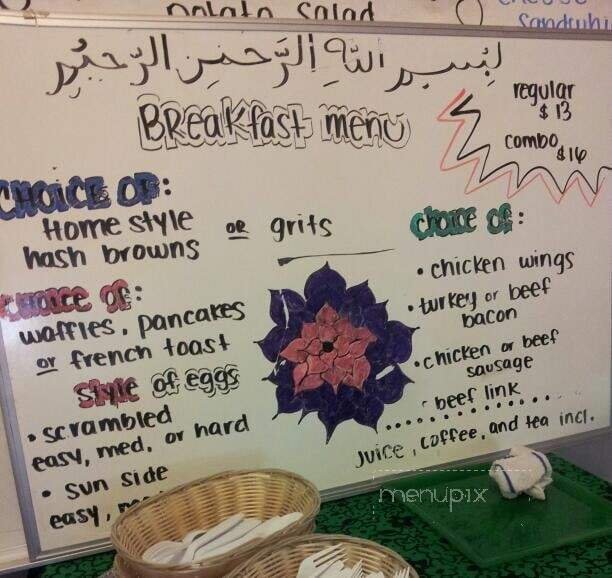 potato salad
بسم الله الرحمن الرحيم
Breakfast menu
regular
$13
combo
$16
CHOICE OF:
Home style
hash browns or grits
choice of:
waffles, pancakes
or french toast
style of eggs
• scrambled
easy, med, or hard
• sun side
easy,
choice of:
• chicken wings
• turkey or beef
bacon
• chicken or beef
sausage
beef link
Juice, coffee, and tea incl.
menupix